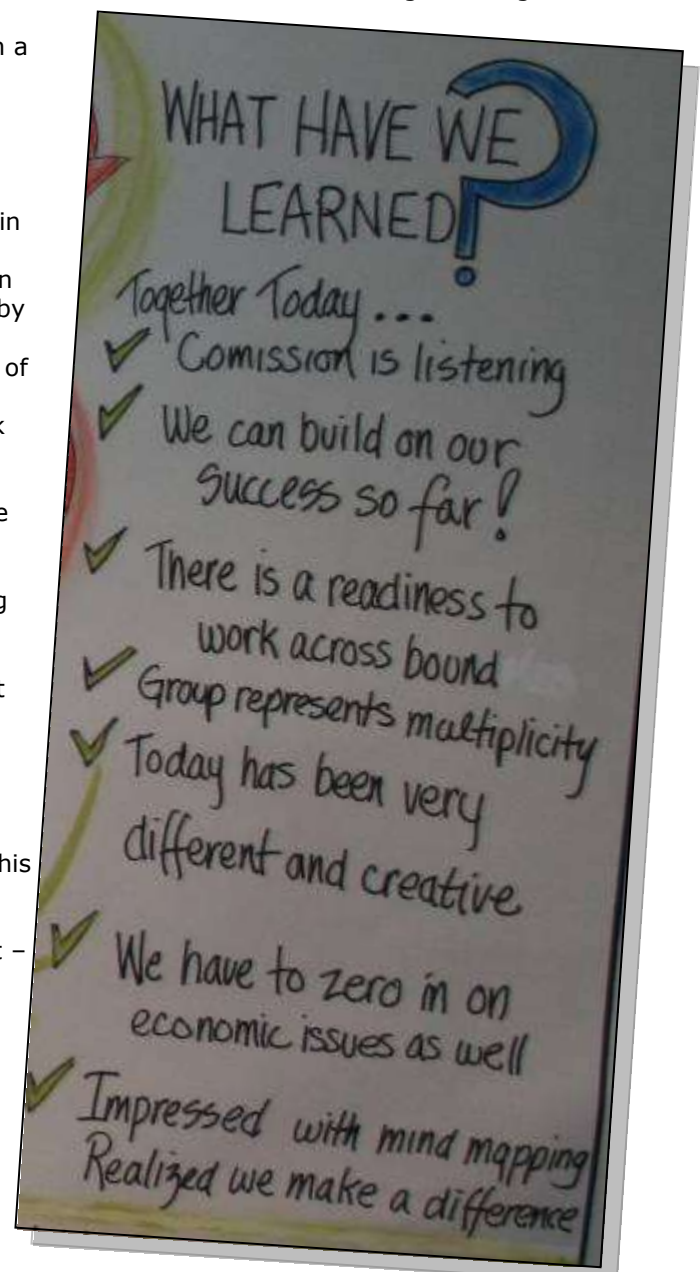 n a
in
n
by
of
k
e
g
t
his
t –
WHAT HAVE WE
LEARNED?
Together Today...
Comission is listening
We can build on our
success so far!
There is a readiness to
work across bound
Group represents multiplicity
Today has been very
different and creative
We have to zero in on
economic issues as well
Impressed with mind mapping
Realized we make a difference